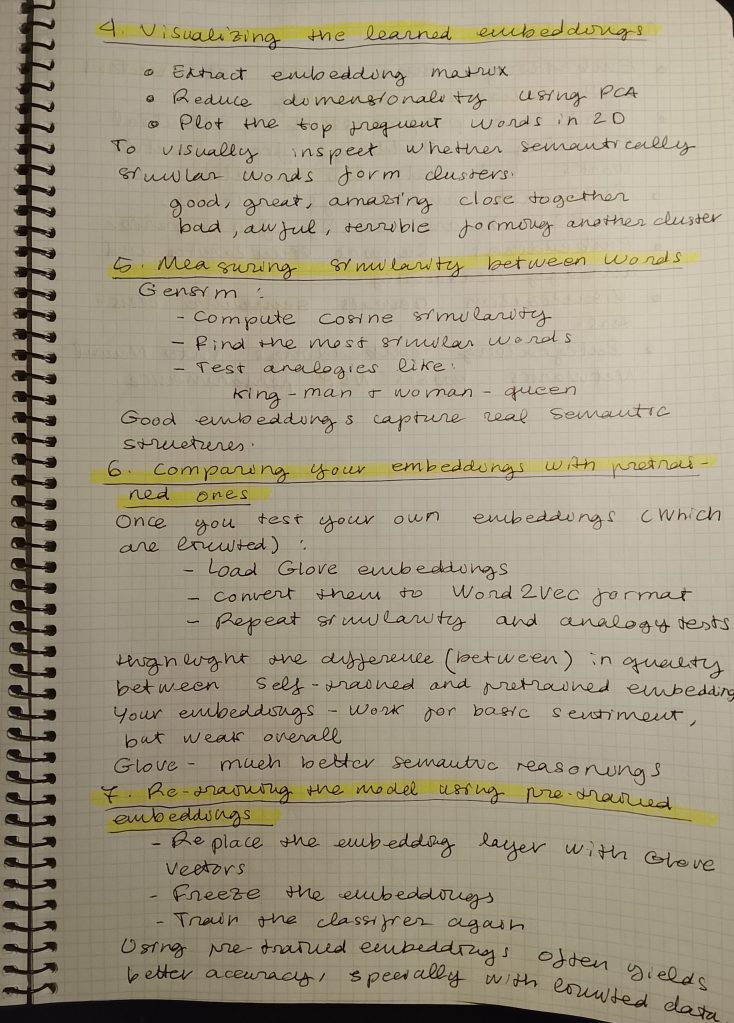 4. Visualizing the learned embeddings
• Extract embedding matrix
• Reduce dimensionality using PCA
• Plot the top frequent words in 2D
To visually inspect whether semantically
similar words form clusters.
good, great, amazing close together
bad, awful, terrible forming another cluster
5. Measuring similarity between words
Gensim :
- Compute cosine similarity
- Find the most similar words
- Test analogies like:
king - man + woman - queen
Good embeddings capture real semantic
structures.
6. Comparing your embeddings with pretrai-
ned ones
Once you test your own embeddings (which
are limited) :
- Load Glove embeddings
- Convert them to Word2Vec format
- Repeat similarity and analogy tests
Highlight the difference (between) in quality
between self-trained and pretrained embedding
Your embeddings - work for basic sentiment,
but weak overall
Glove - much better semantic reasonings
7. Re-training the model using pre-trained
embeddings
- Replace the embedding layer with Glove
vectors
- Freeze the embeddings
- Train the classifier again
Using pre-trained embeddings often yields
better accuracy, specially with limited data